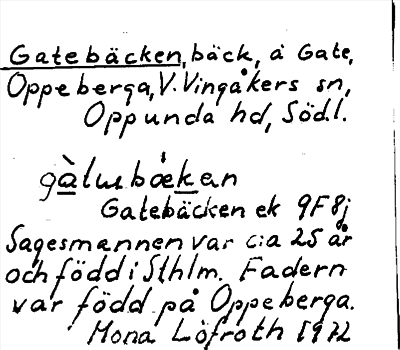 Gatebäcken, bäck, å Gate,
Oppeberga, V. Vingåkers sn,
Oppunda hd, Södl.
Gatebäcken ek 9F8j
Sagesmannen var c:a 25 år
och född i Sthlm. Fadern
var född på Oppeberga.
Mona Löfroth 1972